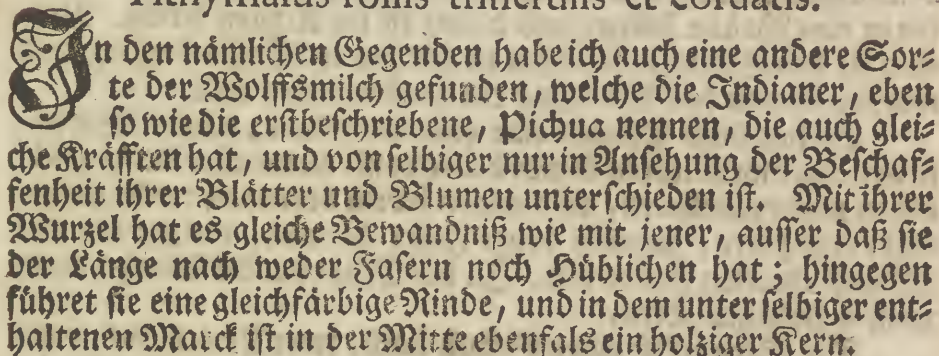 Tithymalus foliis trinervis et cordatis.
In den nämlichen Gegenden habe ich auch eine andere Sor⸗
te der Wolffsmilch gefunden, welche die Indianer, eben
so wie die erstbeschriebene, Pichua nennen, die auch glei⸗
che Kräfften hat, und von selbiger nur in Ansehung der Beschaf⸗
fenheit ihrer Blätter und Blumen unterschieden ist. Mit ihrer
Wurzel hat es gleiche Bewandniß wie mit jener, ausser daß sie
der Länge nach weder Fasern noch Hüblichen hat; hingegen
führet sie eine gleichfärbige Rinde, und in dem unter selbiger ent⸗
haltenen Marck ist in der Mitte ebenfals ein holziger Kern.